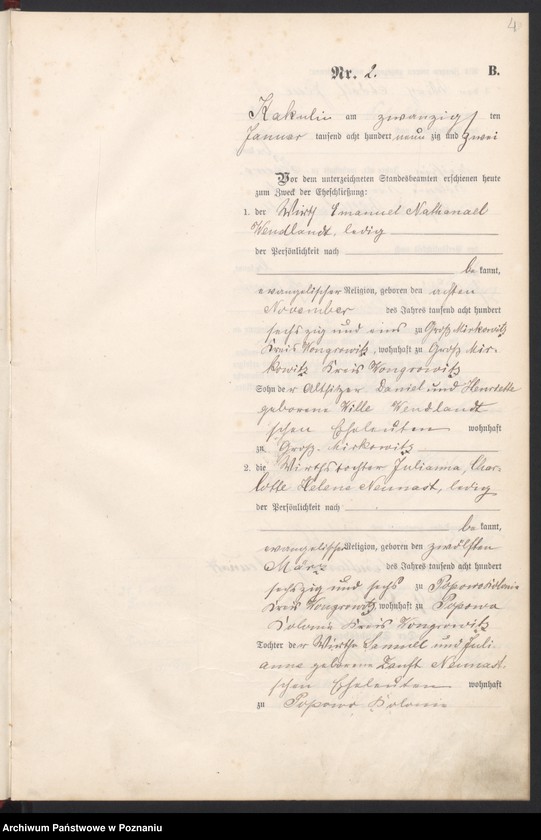 4
Nr. 2. B.
Kakulin am zwanzigsten
Januar tausend acht hundert neunzig und zwei
Vor dem unterzeichneten Standesbeamten erschienen heute
zum Zweck der Eheschließung:
1. der Wirth Emanuel Nathanael
Wendlandt, ledig
der Persönlichkeit nach
bekannt,
evangelischer Religion, geboren den achten
November des Jahres tausend acht hundert
sechszig und eins zu Groß Mirkowitz
Kreis Wongrowitz, wohnhaft zu Groß Mir-
kowitz Kreis Wongrowitz
Sohn der Altsitzer Daniel und Henriette
geborene Wendlandt
schen Eheleuten wohnhaft
zu Groß. Mirkowitz
2. die Wirthstochter Julianna, Char-
lotte Helene Neumast, ledig
der Persönlichkeit nach
bekannt,
evangelischer Religion, geboren den zwölften
März des Jahres tausend acht hundert
sechszig und sechs zu Popowo Kolonie
Kreis Wongrowitz, wohnhaft zu Popowo
Kolonie Kreis Wongrowitz
Tochter der Wirth Samuel und Juli-
anne geborene Neumast
schen Eheleuten wohnhaft
zu Popowo Kolonie
Archiwum Państwowe w Poznaniu